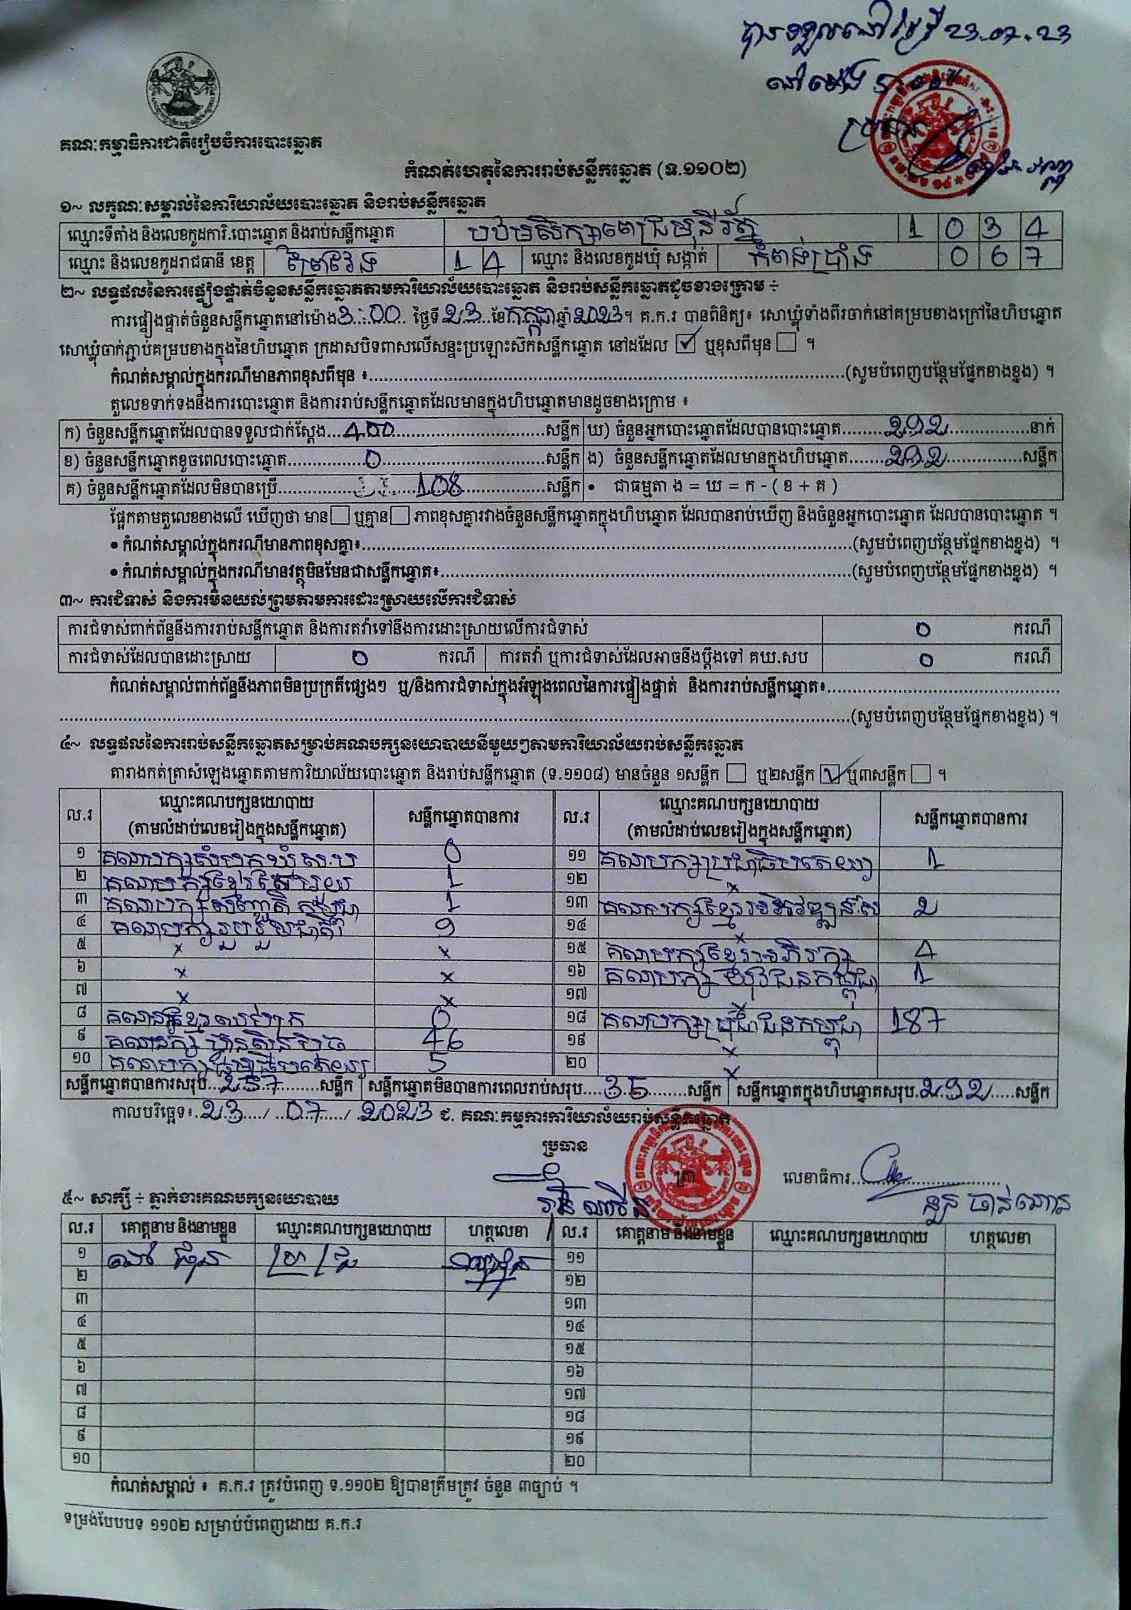 បានទទួលនៅថ្ងៃទី 23.07.23
នៅម៉ោង
ប្រធាន
គណៈកម្មាធិការជាតិរៀបចំការបោះឆ្នោត
កំណត់ហេតុនៃការរាប់សន្លឹកឆ្នោត (ទ.១១០២)
១~ លក្ខណៈសម្គាល់នៃការិយាល័យបោះឆ្នោត និងរាប់សន្លឹកឆ្នោត
ឈ្មោះទីតាំង និងលេខកូដការិ.បោះឆ្នោត និងរាប់សន្លឹកឆ្នោត បឋមសិក្សាពេជ្រមុនីរ័ត្ន 1 0 3 4
ឈ្មោះ និងលេខកូដរាជធានី ខេត្ត ព្រៃវែង 1 4 ឈ្មោះ និងលេខកូដឃុំ សង្កាត់ កំពង់ប្រាំង 0 6 7
២~ លទ្ធផលនៃការផ្ទៀងផ្ទាត់ចំនួនសន្លឹកឆ្នោតតាមការិយាល័យបោះឆ្នោត និងរាប់សន្លឹកឆ្នោតដូចខាងក្រោម ÷
ការផ្ទៀងផ្ទាត់ចំនួនសន្លឹកឆ្នោតនៅម៉ោង 3:00 ថ្ងៃទី 23 ខែ កក្កដា ឆ្នាំ 2023។ គ.ក.រ បានពិនិត្យ៖ សោឃ្លុំទាំងពីរចាក់នៅគម្របខាងក្រៅនៃហិបឆ្នោត
សោឃ្លុំចាក់ភ្ជាប់គម្របខាងក្នុងនៃហិបឆ្នោត ក្រដាសបិទពាសលើសន្ទះប្រឡោះស៊កសន្លឹកឆ្នោត នៅដដែល ☑ ឬខុសពីមុន ☐ ។
កំណត់សម្គាល់ក្នុងករណីមានភាពខុសពីមុន ៖..........(សូមបំពេញបន្ថែមផ្នែកខាងខ្នង) ។
តួលេខទាក់ទងនឹងការបោះឆ្នោត និងការរាប់សន្លឹកឆ្នោតដែលមានក្នុងហិបឆ្នោតមានដូចខាងក្រោម ៖
ក) ចំនួនសន្លឹកឆ្នោតដែលបានទទួលជាក់ស្តែង...400...សន្លឹក ឃ) ចំនួនអ្នកបោះឆ្នោតដែលបានបោះឆ្នោត...292...នាក់
ខ) ចំនួនសន្លឹកឆ្នោតខូចពេលបោះឆ្នោត...0...សន្លឹក ង) ចំនួនសន្លឹកឆ្នោតដែលមានក្នុងហិបឆ្នោត...292...សន្លឹក
គ) ចំនួនសន្លឹកឆ្នោតដែលមិនបានប្រើ...108...សន្លឹក • ជាធម្មតា ង = ឃ = ក - ( ខ + គ )
ផ្អែកតាមតួលេខខាងលើ ឃើញថា មាន ☐ ឬគ្មាន ☐ ភាពខុសគ្នារវាងចំនួនសន្លឹកឆ្នោតក្នុងហិបឆ្នោត ដែលបានរាប់ឃើញ និងចំនួនអ្នកបោះឆ្នោត ដែលបានបោះឆ្នោត ។
• កំណត់សម្គាល់ក្នុងករណីមានភាពខុសគ្នា៖..........(សូមបំពេញបន្ថែមផ្នែកខាងខ្នង) ។
• កំណត់សម្គាល់ក្នុងករណីមានវត្ថុមិនមែនជាសន្លឹកឆ្នោត៖..........(សូមបំពេញបន្ថែមផ្នែកខាងខ្នង) ។
៣~ ការជំទាស់ និងការមិនយល់ព្រមតាមការដោះស្រាយលើការជំទាស់
ការជំទាស់ពាក់ព័ន្ធនឹងការរាប់សន្លឹកឆ្នោត និងការតវ៉ាទៅនឹងការដោះស្រាយលើការជំទាស់ 0 ករណី
ការជំទាស់ដែលបានដោះស្រាយ 0 ករណី ការតវ៉ា ឬការជំទាស់ដែលអាចនឹងប្តឹងទៅ គឃ.សប 0 ករណី
កំណត់សម្គាល់ពាក់ព័ន្ធនឹងភាពមិនប្រក្រតីផ្សេងៗ ឬ/និងការជំទាស់ក្នុងអំឡុងពេលនៃការផ្ទៀងផ្ទាត់ និងការរាប់សន្លឹកឆ្នោត៖..........
..........(សូមបំពេញបន្ថែមផ្នែកខាងខ្នង) ។
៤~ លទ្ធផលនៃការរាប់សន្លឹកឆ្នោតសម្រាប់គណបក្សនយោបាយនីមួយៗតាមការិយាល័យរាប់សន្លឹកឆ្នោត
តារាងកត់ត្រាសំឡេងឆ្នោតតាមការិយាល័យបោះឆ្នោត និងរាប់សន្លឹកឆ្នោត (ទ.១១០៨) មានចំនួន ១សន្លឹក ☐ ឬ២សន្លឹក ☑ ឬ៣សន្លឹក ☐ ។
ល.រ ឈ្មោះគណបក្សនយោបាយ សន្លឹកឆ្នោតបានការ ល.រ ឈ្មោះគណបក្សនយោបាយ សន្លឹកឆ្នោតបានការ
(តាមលំដាប់លេខរៀងក្នុងសន្លឹកឆ្នោត) (តាមលំដាប់លេខរៀងក្នុងសន្លឹកឆ្នោត)
១ គណបក្សសំបុកឃ្មុំស.ប 0 ១១ គណបក្សប្រជាធិបតេយ្យ 1
២ គណបក្សខ្មែរតែមួយ 1 ១២ x
៣ គណបក្សសញ្ជាតិកម្ពុជា 1 ១៣ គណបក្សខ្មែរអភិវឌ្ឍន៍.ស 2
៤ គណបក្សរួបរួមជាតិ 9 ១៤ x
៥ x x ១៥ គណបក្សខ្មែរអភិរក្ស 4
៦ x x ១៦ គណបក្សយុវជនកម្ពុជា 1
៧ x x ១៧ x
៨ គណបក្សខ្មែរឈប់ក្រ 0 ១៨ គណបក្សប្រជាជនកម្ពុជា 187
៩ គណបក្សហ្វ៊ុនស៊ិនប៉ិច 46 ១៩ x
១០ គណបក្សធម្មាធិបតេយ្យ 5 ២០ x
សន្លឹកឆ្នោតបានការសរុប...257...សន្លឹក សន្លឹកឆ្នោតមិនបានការពេលរាប់សរុប...35...សន្លឹក សន្លឹកឆ្នោតក្នុងហិបឆ្នោតសរុប...292...សន្លឹក
កាលបរិច្ឆេទ៖..23../..07../..2023 ជ. គណៈកម្មការការិយាល័យរាប់សន្លឹកឆ្នោត
ប្រធាន
លេខាធិការ
៥~ សាក្សី ÷ ភ្នាក់ងារគណបក្សនយោបាយ
ល.រ គោត្តនាម និងនាមខ្លួន ឈ្មោះគណបក្សនយោបាយ ហត្ថលេខា ល.រ គោត្តនាម និងនាមខ្លួន ឈ្មោះគណបក្សនយោបាយ ហត្ថលេខា
១ ១១
២ ១២
៣ ១៣
៤ ១៤
៥ ១៥
៦ ១៦
៧ ១៧
៨ ១៨
៩ ១៩
១០ ២០
កំណត់សម្គាល់ ៖ គ.ក.រ ត្រូវបំពេញ ទ.១១០២ ឱ្យបានត្រឹមត្រូវ ចំនួន ៣ច្បាប់ ។
ទម្រង់បែបបទ ១១០២ សម្រាប់បំពេញដោយ គ.ក.រ